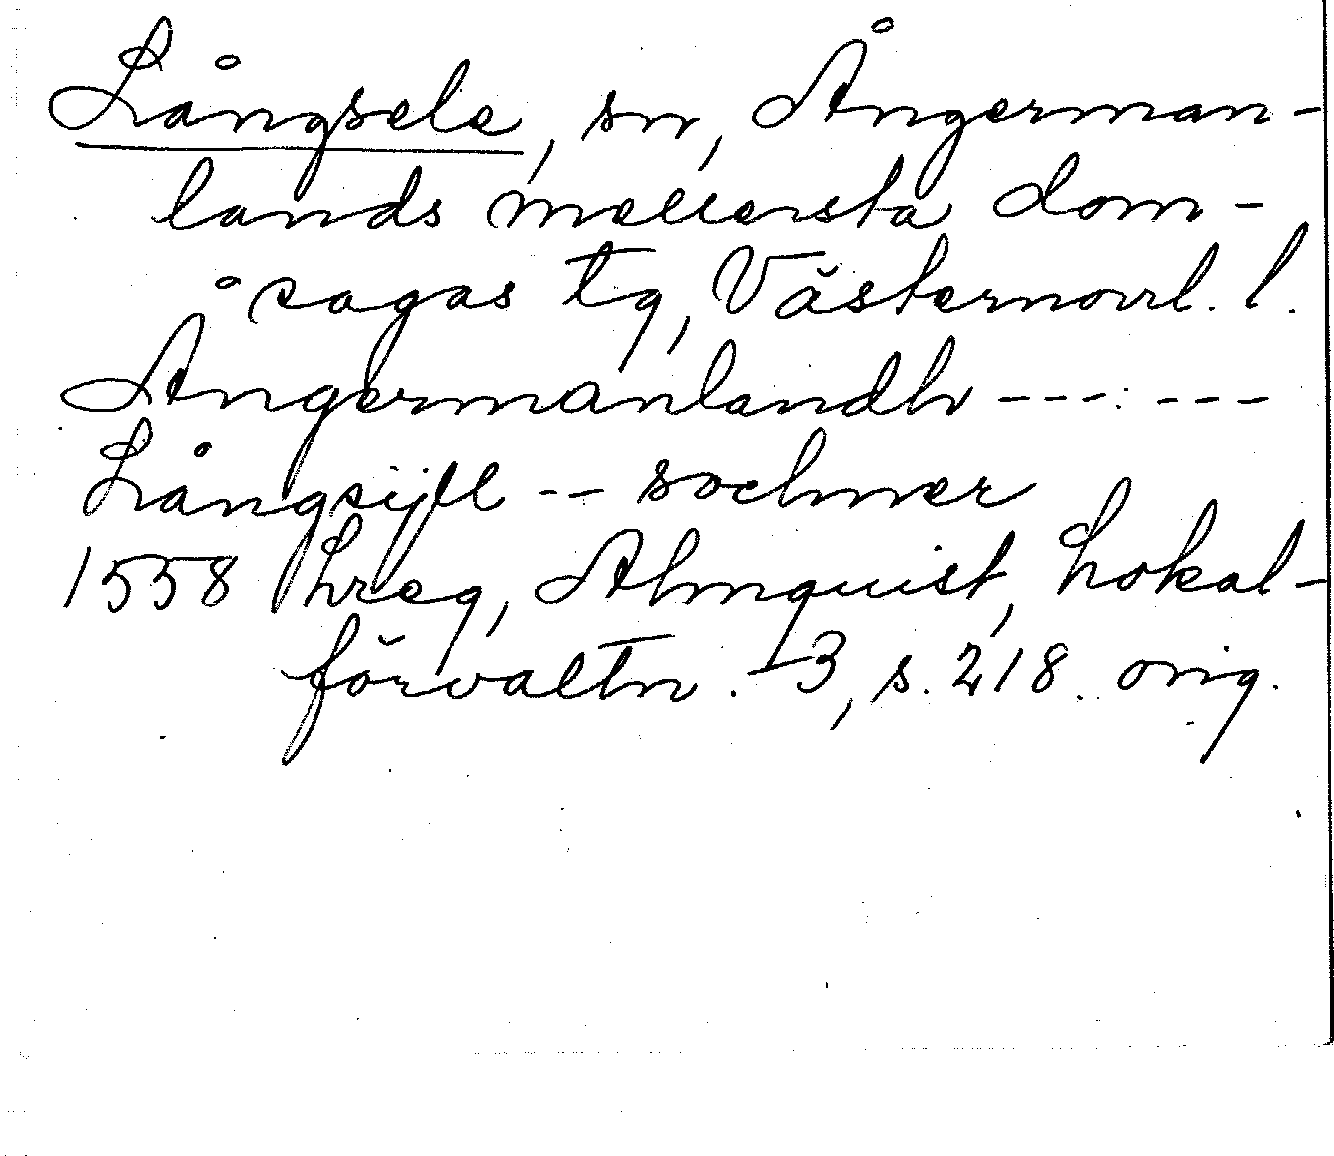 Långsele, sn, Ångerman-
lands mellersta dom-
sagas tg, Västernorrl. l.
Ångermanlandh ------
Långsijll -- sochner
1558 hreg, Almquist, Lokal-
förvaltn. 3, s. 218 orig.